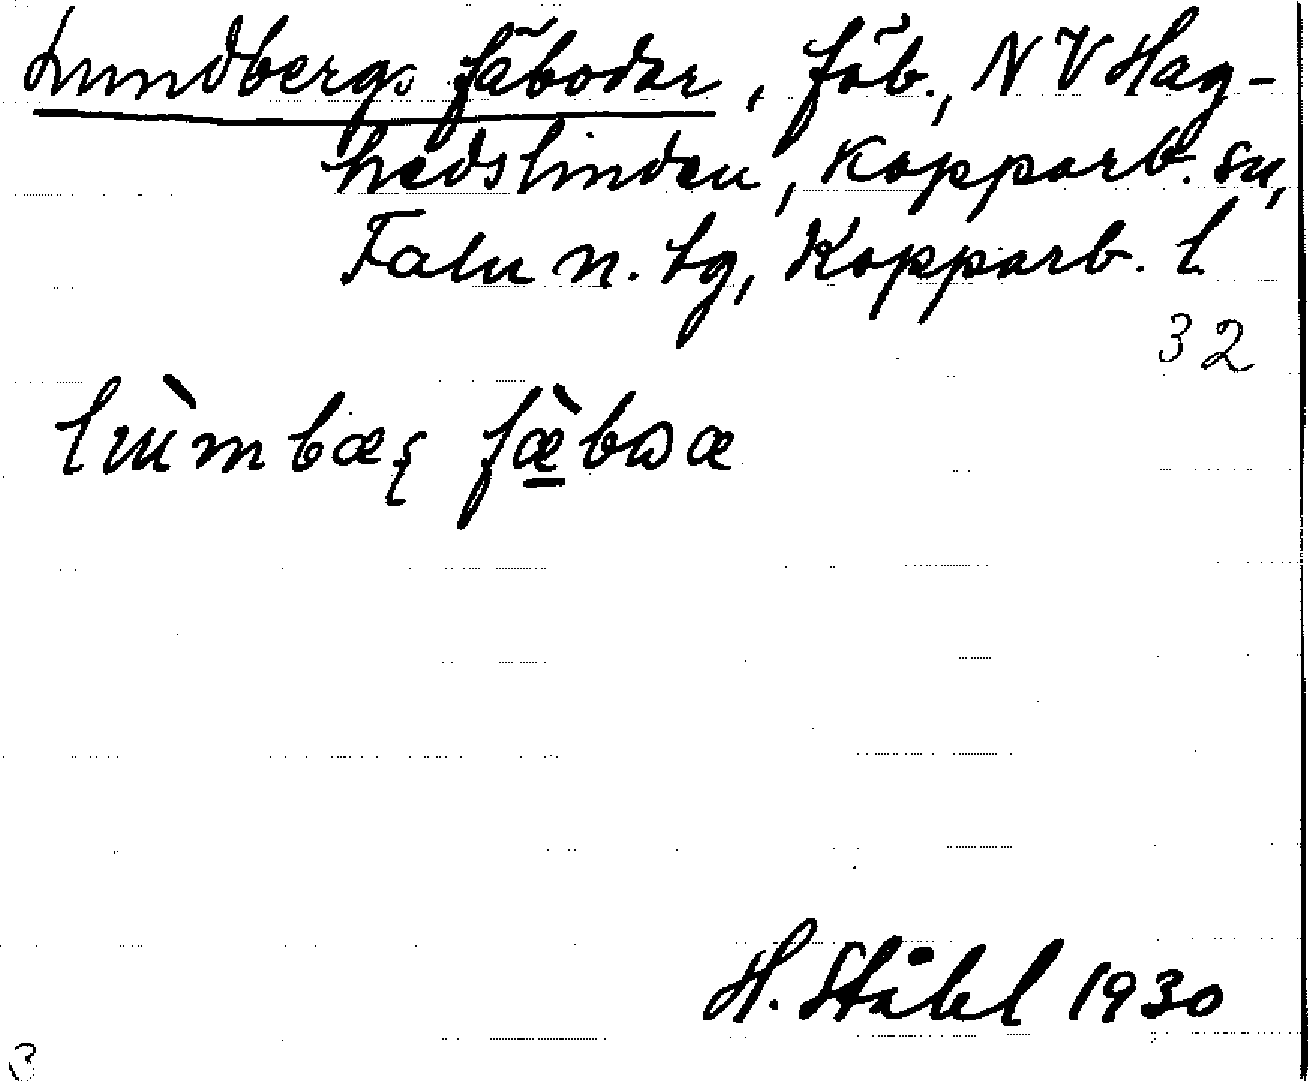 Lundbergs fäbodar, fäb., NV Hag-
hedslinden, Kopparb. sn,
Falu n. tg, Kopparb. l
32
lùmbæꞩ fæ̀bωæ
H. Ståhl 1930
3